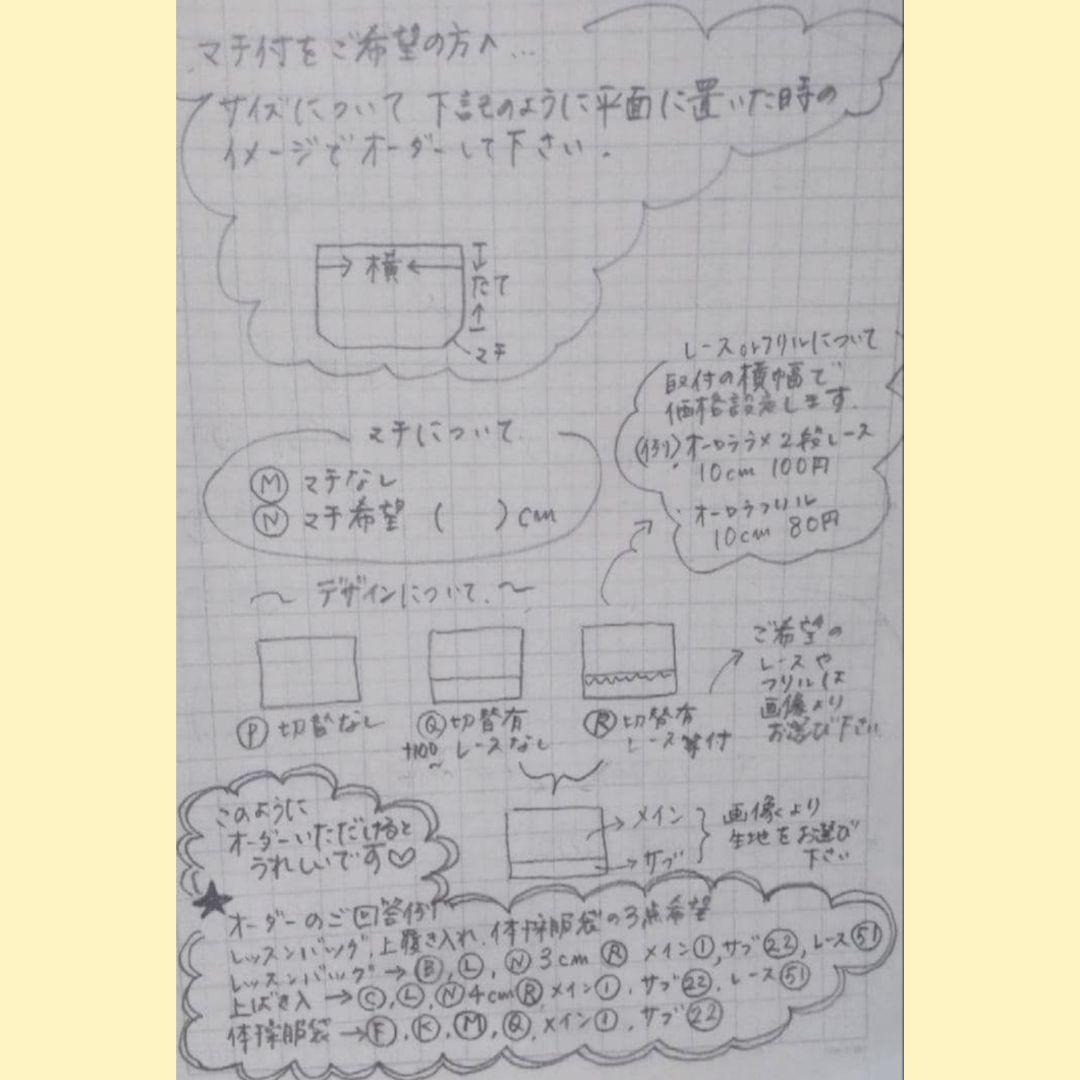 マチ付をご希望の方へ…
サイズについて 下記のように平面に置いた時の
イメージでオーダーして下さい.
横
たて
マチ
レースorフリルについて
取付の横幅で
価格設定します.
(例) オーロララメ2段レース
10cm 100円
オーロラフリル
10cm 80円
マチについて
Ⓜ マチなし
Ⓝ マチ希望 ( )cm
〜 デザインについて. 〜
Ⓟ 切替なし
Ⓠ 切替有
+100 レースなし
〜
Ⓡ 切替有
レース等付
ご希望の
レースや
フリルは
画像より
お選び下さい
メイン
サブ
画像より
生地をお選び
下さい
このように
オーダーいただけると
うれしいです♡
★
オーダーのご回答例
レッスンバッグ,上履き入れ,体操服袋の3点希望
レッスンバッグ→Ⓑ,Ⓛ,Ⓝ3cm Ⓡ メイン①,サブ㉒,レース㊿①
上ばき入 →Ⓒ,Ⓛ,Ⓝ4cmⓇメイン①,サブ㉒,レース㊿①
体操服袋→Ⓕ,Ⓚ,Ⓜ,Ⓠ,メイン①,サブ㉒